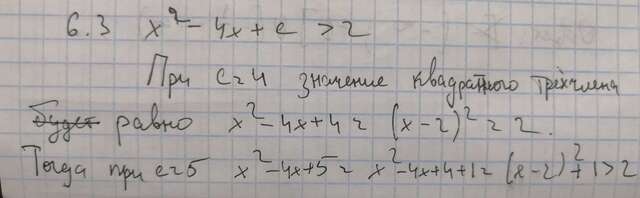 6.3 x² - 4x + c > 2
При c=4 значение квадратного трёхчлена
будет равно x² - 4x + 4 = (x-2)² = 2.
Тогда при c=5 x² - 4x + 5 = x² - 4x + 4 + 1 = (x-2)² + 1 > 2